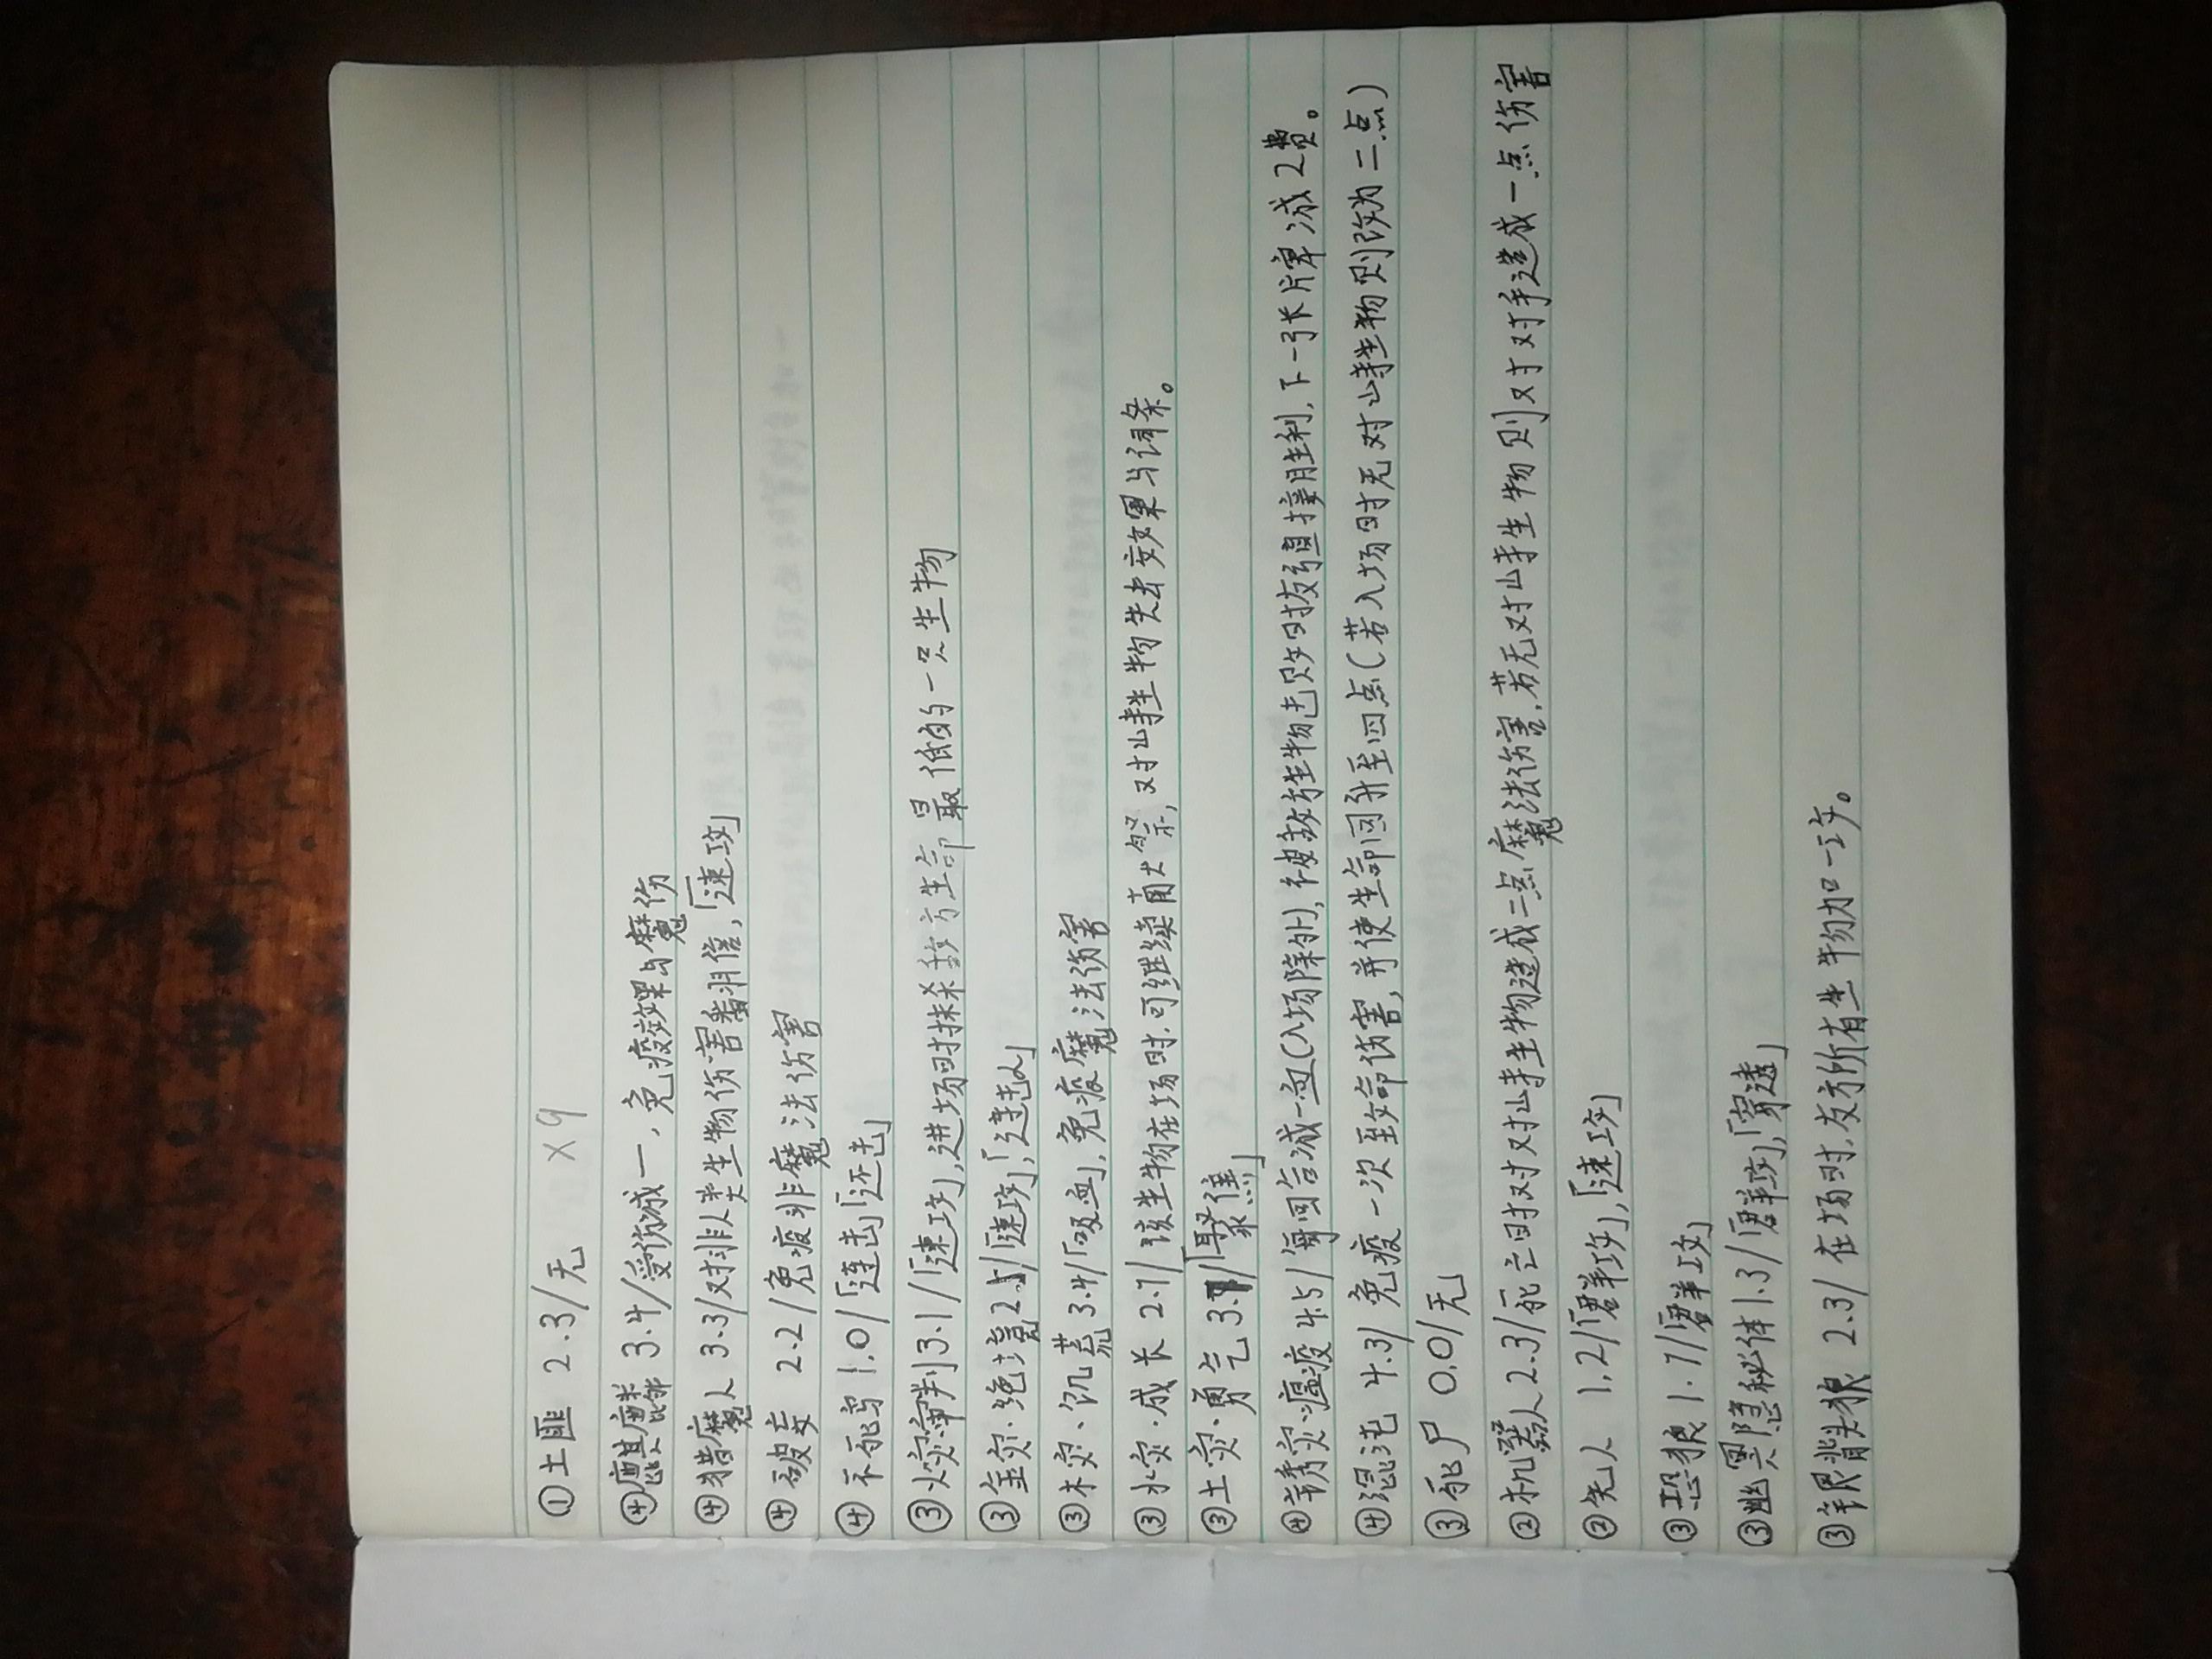 ①土匪 2.3/无 ×9
④ 3.4/受伤减一,免疫效果与魔伤
④猎魔人 3.3/对非人类生物伤害翻倍,「速攻」
④破妄 2.2/免疫非魔法伤害
④不死鸟 1.0/「连击」「还击」
③火灾·审判3.1/「速攻」,进场时抹杀敌方生命最低的一只生物
③金灾·绝境2.5/「速攻」,「连击」
③木灾、饥荒3.4/「吸血」,免疫魔法伤害
③水灾·成长 2.1/该坐物在场时.可继续献祭,对峙坐物失去效果与词条。
③土灾·勇气 3.1/「聚焦」
④诱灾·瘟疫 4.5/每回合减一血(入场除外),被敌方生物击败时友方直接胜利,下一张片牌减2费。
④混沌 4.3/免疫一次至命伤害,并使生命回升至四点(若入场时无对峙坐物则改为二点)
③死尸 0.0/无
②机器人2.3/死亡时对对峙坐物造成二点魔法伤害,若无对峙生物则对对手造成一点伤害
②矢人 1.2/「群攻」,「速攻」
③恐狼 1.1/「群攻」
③幽冥隐秘体1.3/「群攻」,「穿透」
③银背头狼 2.3/在场时.友方所有生物加一攻。